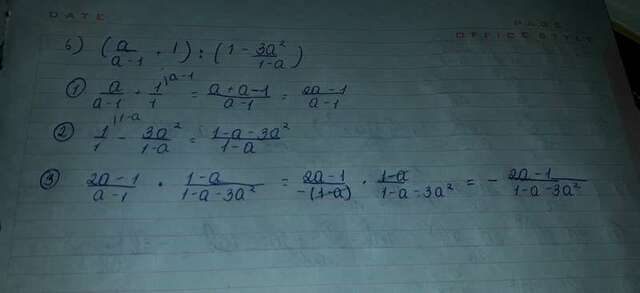 DATE
PAGE
OFFICE STYLE
б) (a/(a-1) + 1) : (1 - 3a²/(1-a))
① a/(a-1) + 1/1 |a-1 = (a+a-1)/(a-1) = (2a-1)/(a-1)
② 1/1 |1-a - 3a²/(1-a) = (1-a-3a²)/(1-a)
③ (2a-1)/(a-1) · (1-a)/(1-a-3a²) = (2a-1)/(-(1-a)) · (1-a)/(1-a-3a²) = - (2a-1)/(1-a-3a²)